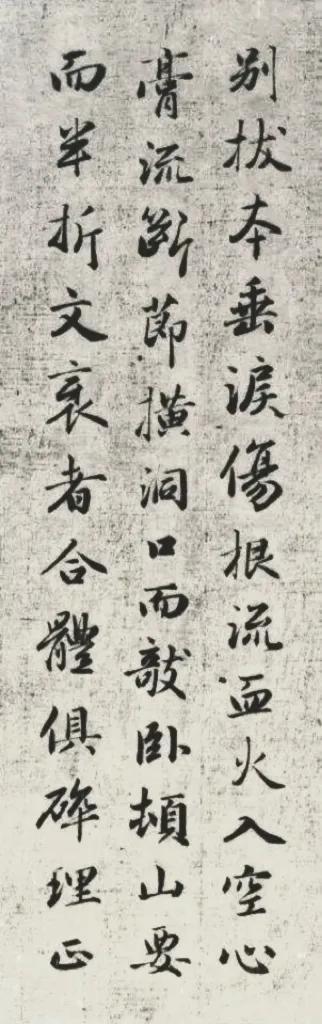 別拔本垂淚傷根流血火入空心
膏流斷莭撗洞口而敧卧頓山要
而半折文衺者合體俱碎理正